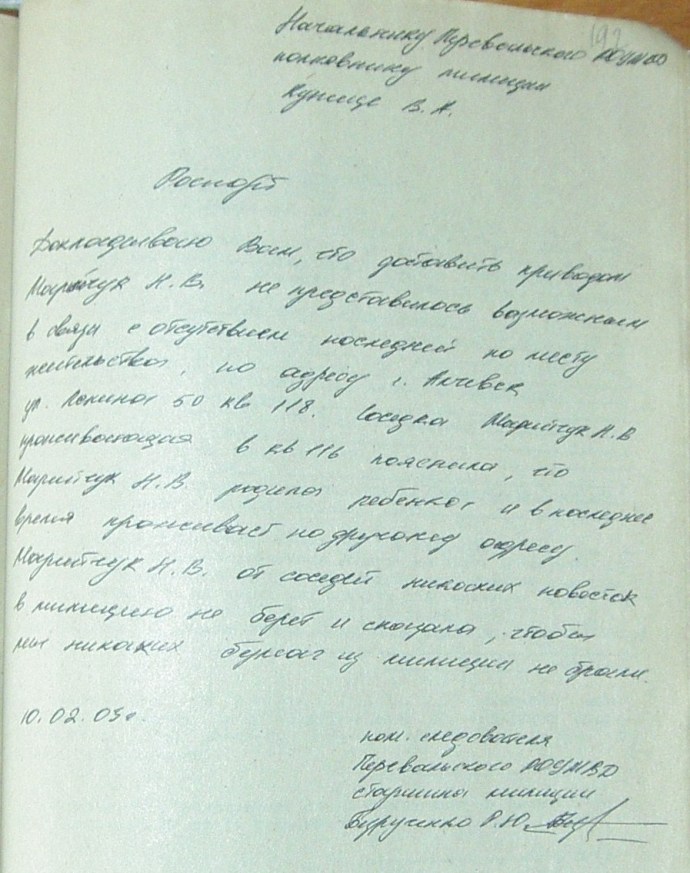 192
Начальнику Перевальского РОУМВД
полковнику милиции
Кунице В. А.
Рапорт
Докладываю Вам, что доставить приводом
Марийчук Н.В. не представилось возможным
в связи с отсутствием последней по месту
жительства, по адресу г. Алчевск
ул. Ленина 50 кв 118. Соседка Марийчук Н.В
проживающая в кв 116 пояснила, что
Марийчук Н.В. родила ребенка и в последнее
время проживает по другому адресу.
Марийчук Н.В. от соседей никаких повесток
в милицию не берет и сказала, чтобы
мы никаких бумаг из милиции не брали.
10.02.05г.
пом. следователя
Перевальского РОУМВД
старшина милиции
Р.Ю.